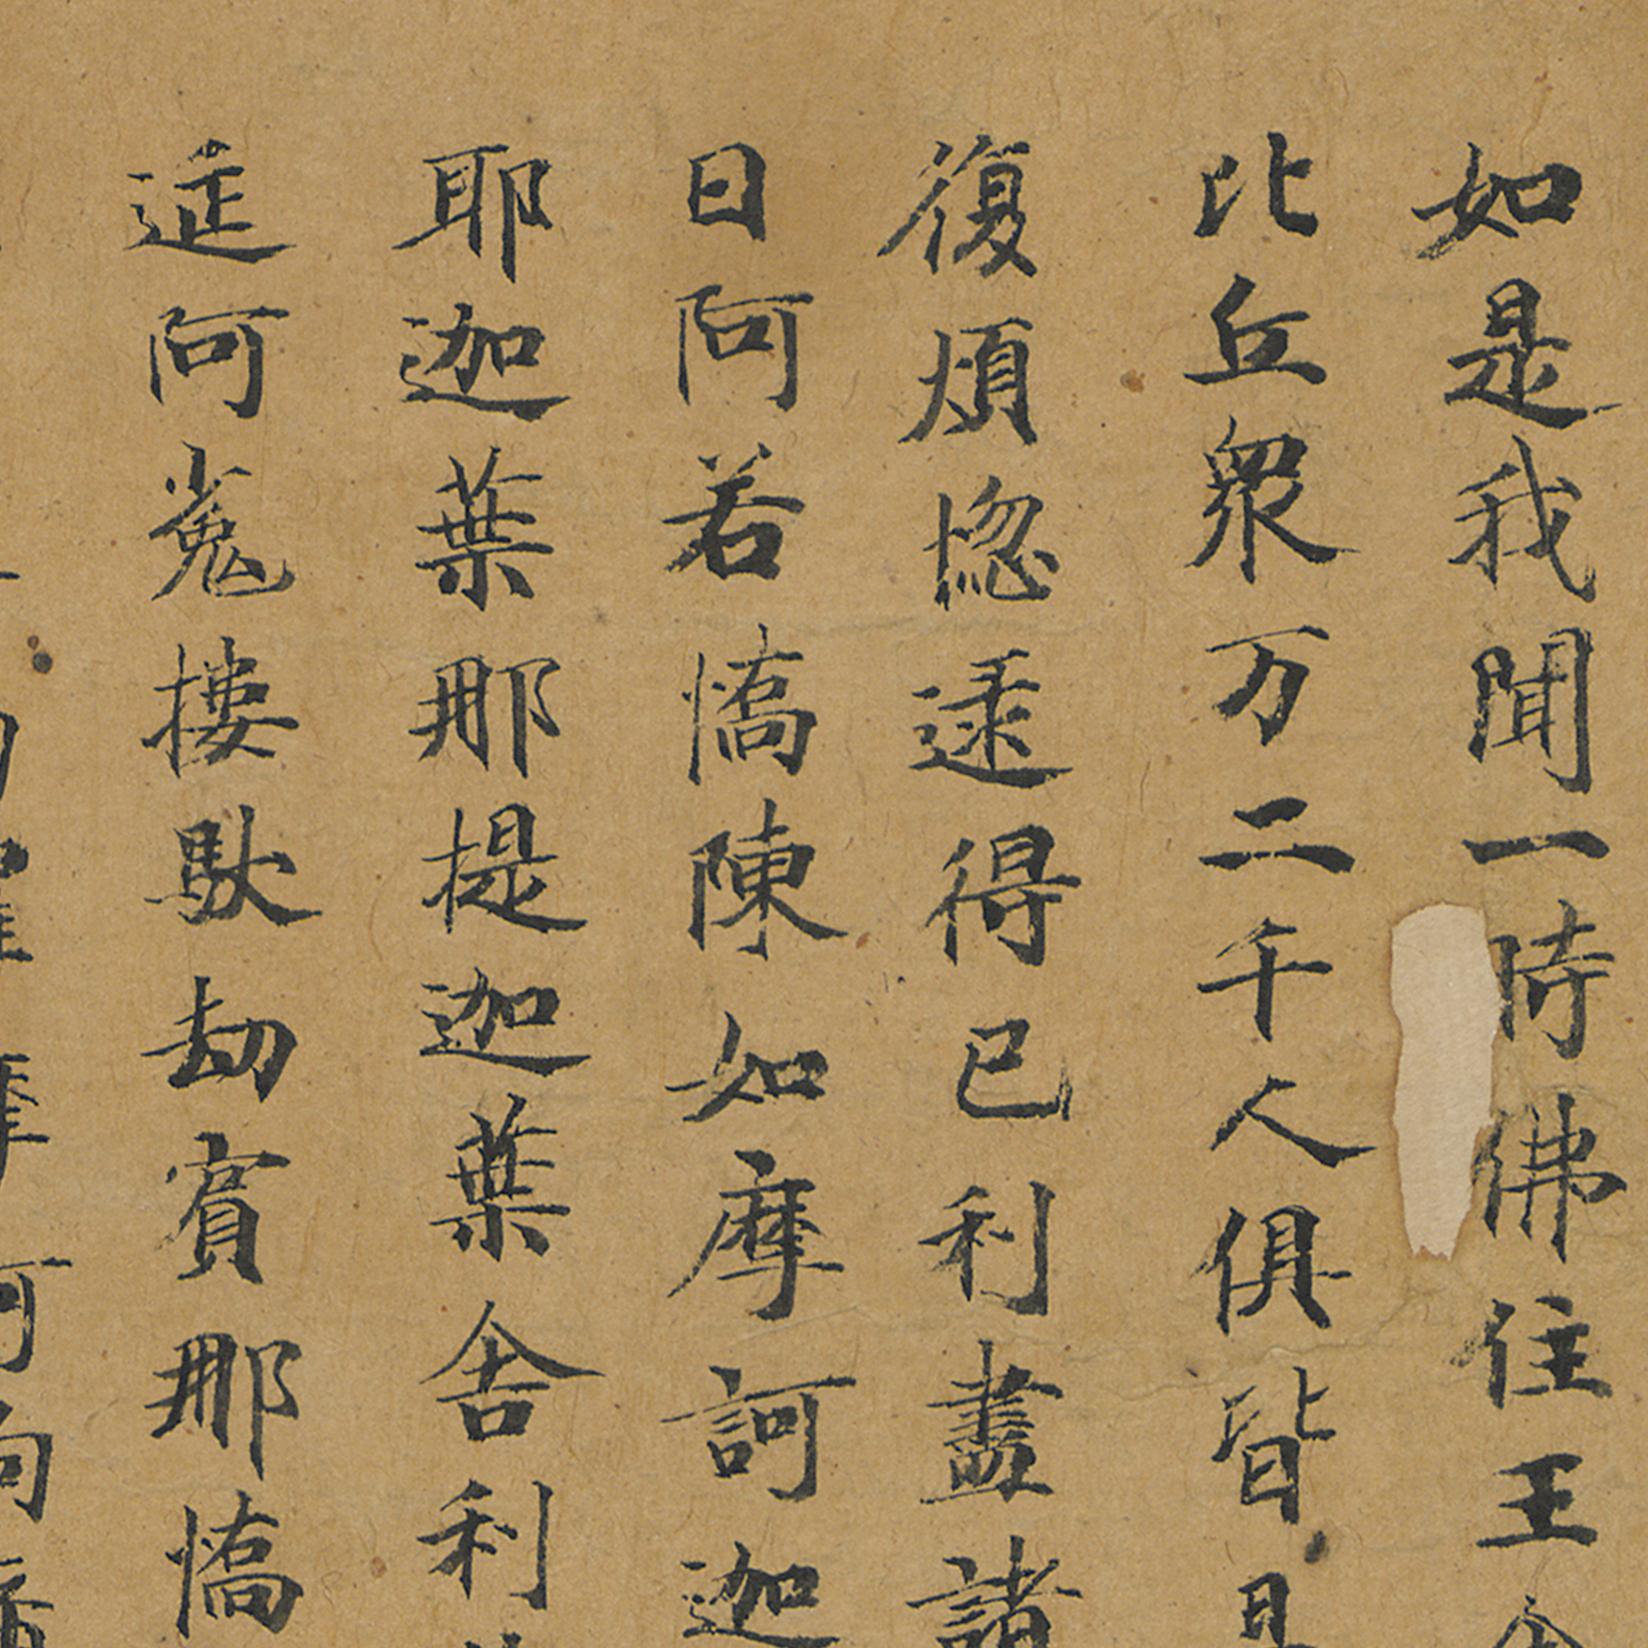 如是我聞一時佛住王
比丘衆万二千人俱皆是
復煩惚逮得已利盡諸
曰阿若憍陳如摩訶迦
耶迦葉那提迦葉舍利
延阿㝹樓馱劫賓那憍